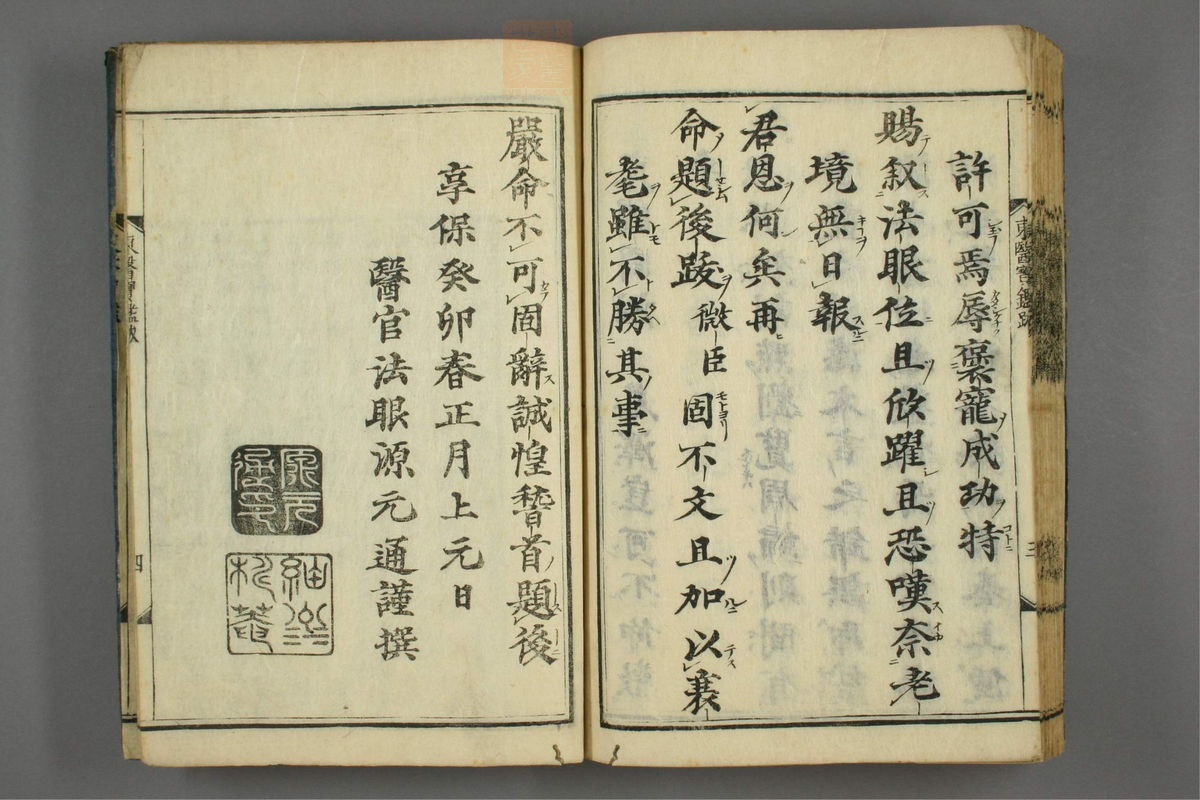 許可焉辱褒寵成功特
賜叙法眼位且欣躍且恐嘆奈老
境無日報
君恩何矣再
命題後跋微臣固不文且加以衰
耄雖不勝其事
嚴命不可固辭誠惶稽首題後
享保癸卯春正月上元日
醫官法眼源元通謹撰
東醫寶鑑跋
三
四